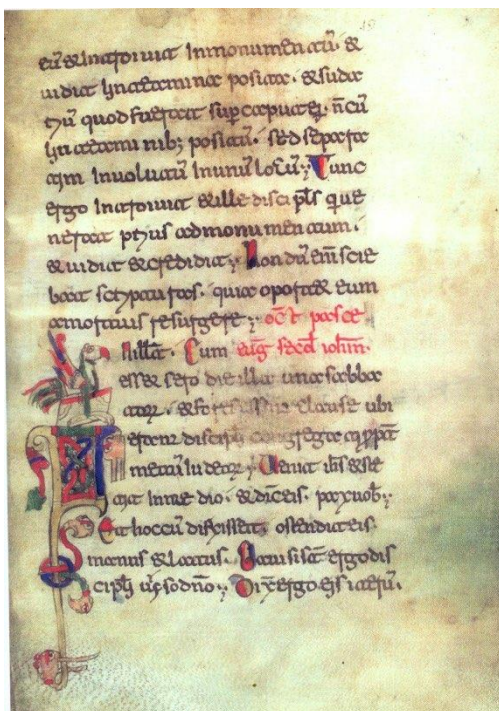 eū & introiuit in monumentū &
uidit linteamina posita. & suda
riū quod fuerat sup caput ei. n̄ cū
linteaminib; positū. sed separa
tim inuolutū in unū locū; Tunc
ergo introiuit & ille discipl̄s que
nerat prius ad monumentum.
& uidit & credidit; Non dū em̄ scie
bat scripturas. quia oportet eum
a mortuis resurgere; oct̄ pasce
In illa t̄. Cum euḡ secd̄ iohm̄.
esset sero die illa una sabba
tor. & fores clause ubi
erant discipli congregati ppt̄
metū iudeor; Uenit ih̄s & ste
tit in medio. & dic eis. pax uob;
Et hoc cū dixisset. ostendit eis.
manus & latus. Gauisi st̄ ergo dis
cipli uiso dn̄o; Dix̄ ergo eis iterū.